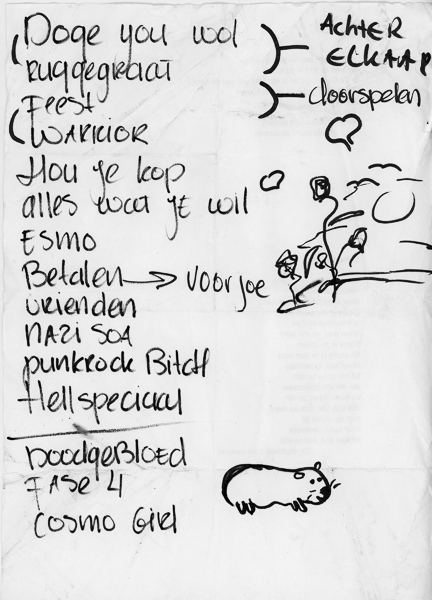 Doge you wol
ruggegraat
ACHTER
ELKAAR
Feest
WARRIOR
doorspelen
Hou je kop
alles wat je wil
ESMO
Betalen → voor joe
vrienden
NAZI SOA
punkrock Bitch
Hellspeciaal
DoodgeBloed
FASE 4
Cosmo Girl